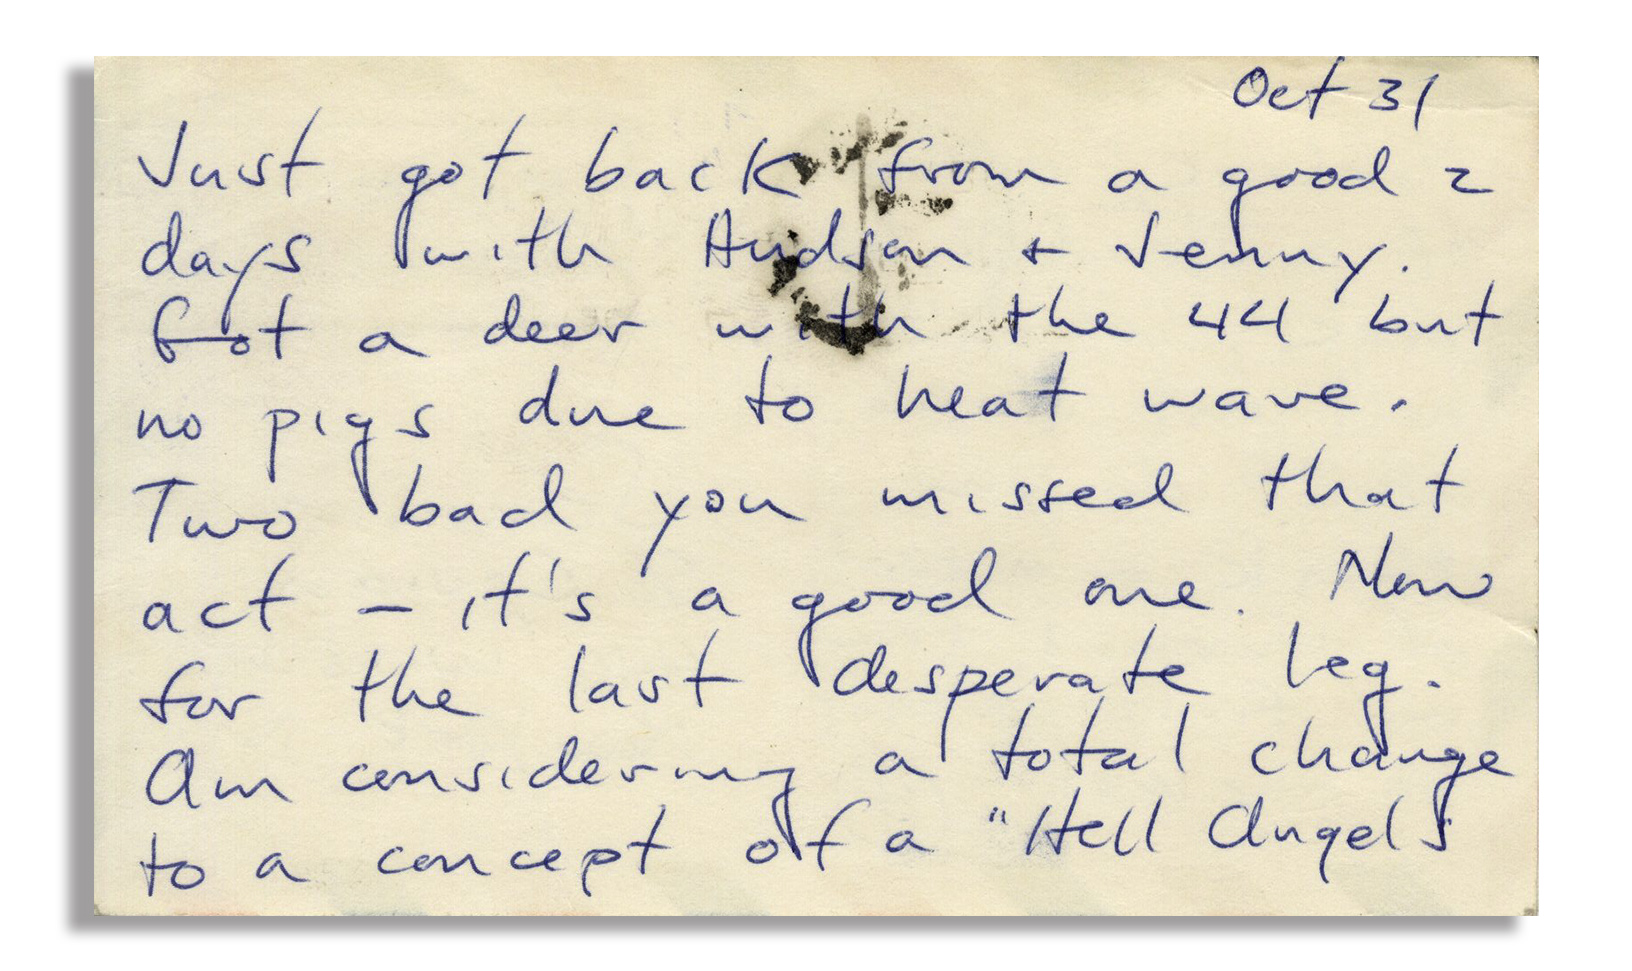 Oct 31
Just got back from a good 2
days with Hudson + Jenny.
Got a deer with the 44 but
no pigs due to heat wave.
Two bad you missed that
act – it's a good one. Now
for the last desperate leg.
Am considering a total change
to a concept of a "Hell Angels